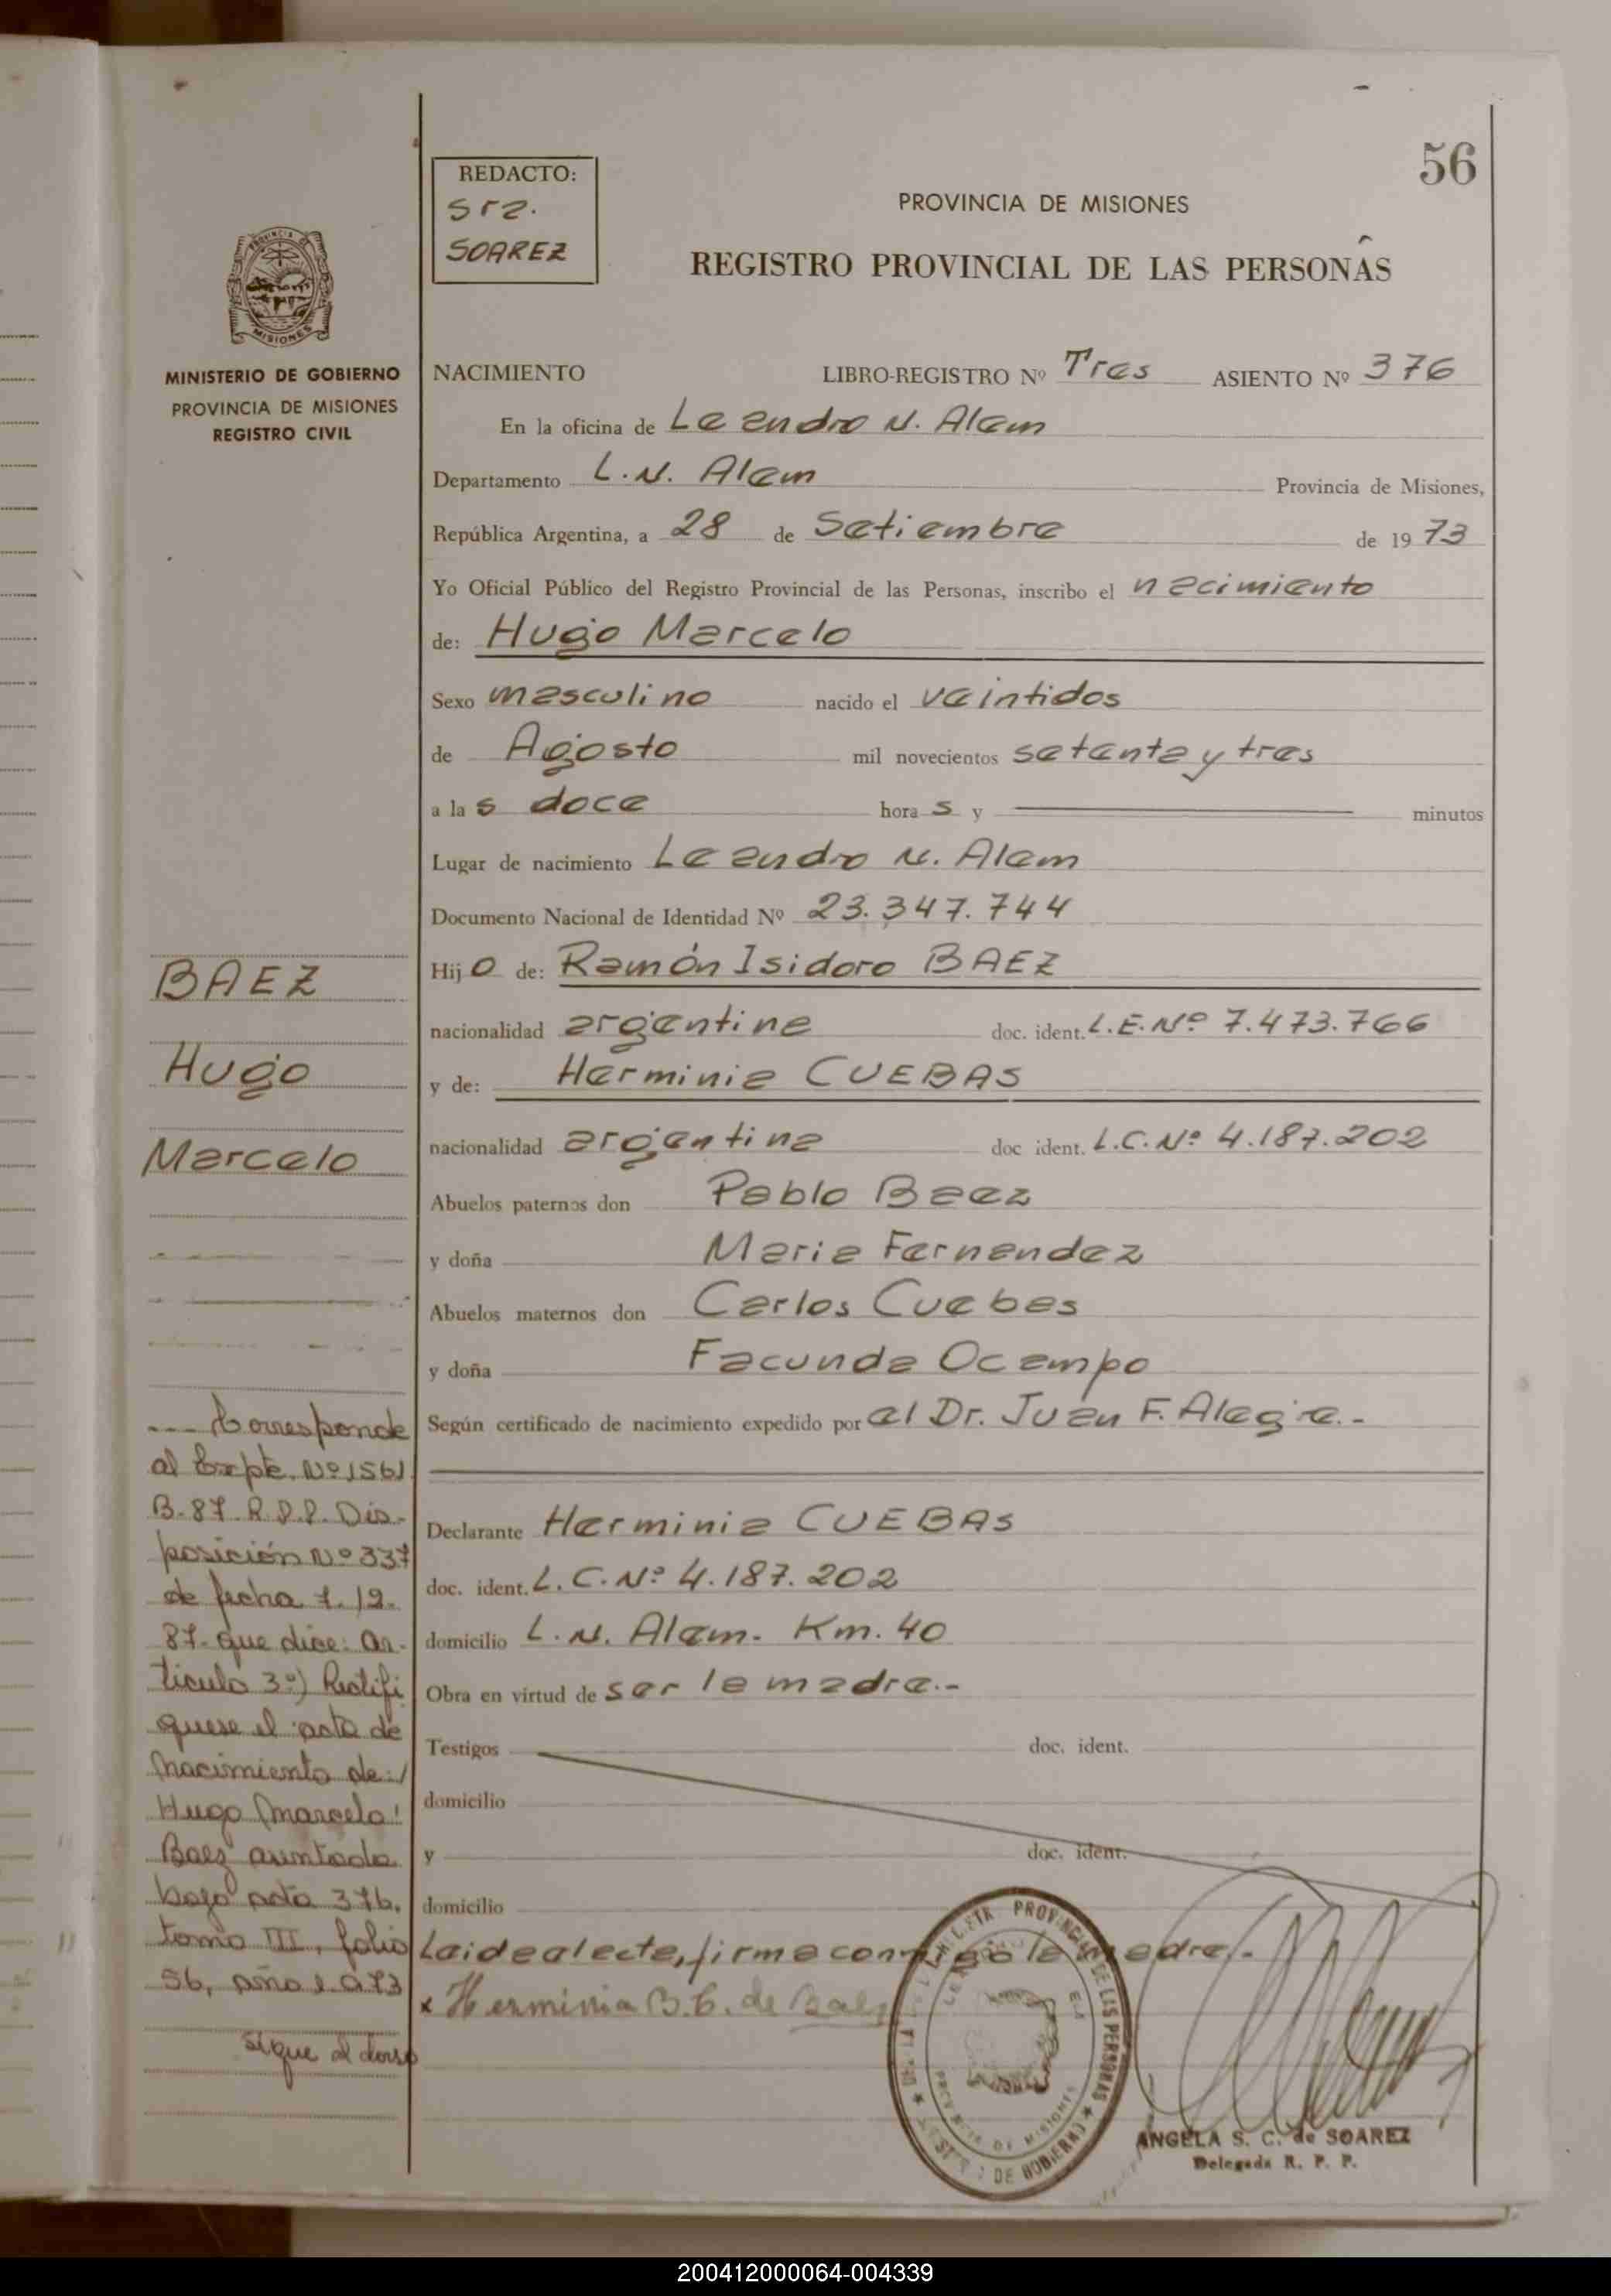 56
REDACTO:
Sra.
SOAREZ
PROVINCIA DE MISIONES
REGISTRO PROVINCIAL DE LAS PERSONAS
MISIONES
MINISTERIO DE GOBIERNO
PROVINCIA DE MISIONES
REGISTRO CIVIL
NACIMIENTO LIBRO-REGISTRO Nº Tres ASIENTO Nº 376
En la oficina de Leandro N. Alem
Departamento L.N. Alem Provincia de Misiones,
República Argentina, a 28 de Setiembre de 1973
Yo Oficial Público del Registro Provincial de las Personas, inscribo el nacimiento
de: Hugo Marcelo
Sexo masculino nacido el veintidos
de Agosto mil novecientos setenta y tres
a las doce horas y minutos
Lugar de nacimiento Leandro N. Alem
Documento Nacional de Identidad Nº 23.347.744
Hijo de: Ramón Isidoro BAEZ
nacionalidad argentina doc. ident. L.E.Nº 7.473.766
y de: Herminia CUEBAS
nacionalidad argentina doc ident. L.C.Nº 4.187.202
Abuelos paternos don Pablo Baez
y doña Maria Fernandez
Abuelos maternos don Carlos Cuebas
y doña Facunda Ocampo
Según certificado de nacimiento expedido por el Dr. Juan F. Alegre.-
Declarante Herminia CUEBAS
doc. ident. L.C.Nº 4.187.202
domicilio L.N. Alem. Km. 40
Obra en virtud de ser la madre.-
Testigos doc. ident.
domicilio
y doc. ident.
domicilio
Leida el acta, firma conmigo la madre.-
x Herminia B.C. de Baez
ANGELA S. C. de SOAREZ
Delegada R. P. P.
BAEZ
Hugo
Marcelo
Corresponde
al Expte. Nº 1561
B-87-R.P.P. Dis-
posición Nº 337
de fecha 7.12.
87- que dice: Ar-
ticulo 3º) Rectifi
quese el acta de
nacimiento de:/
Hugo Marcelo
Baez asentada
bajo acta 376,
tomo III, folio
56, año 1.973
sigue al dorso
200412000064-004339